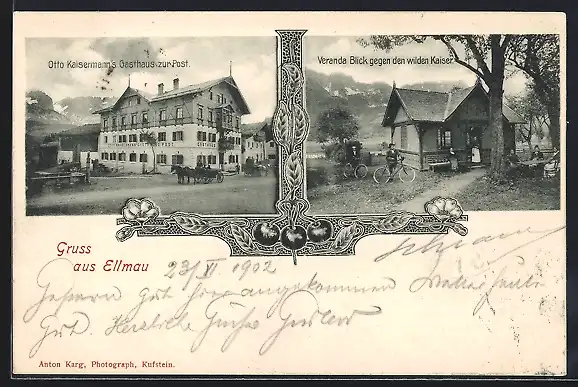 Otto Kaisermann's Gasthaus zur Post.
Veranda Blick gegen den wilden Kaiser.
Gruss
aus Ellmau
23/VI 1902
Gestern Gut hier angekommen
Gut. Herzliche Grüße Gustav
Anton Karg, Photograph, Kufstein.